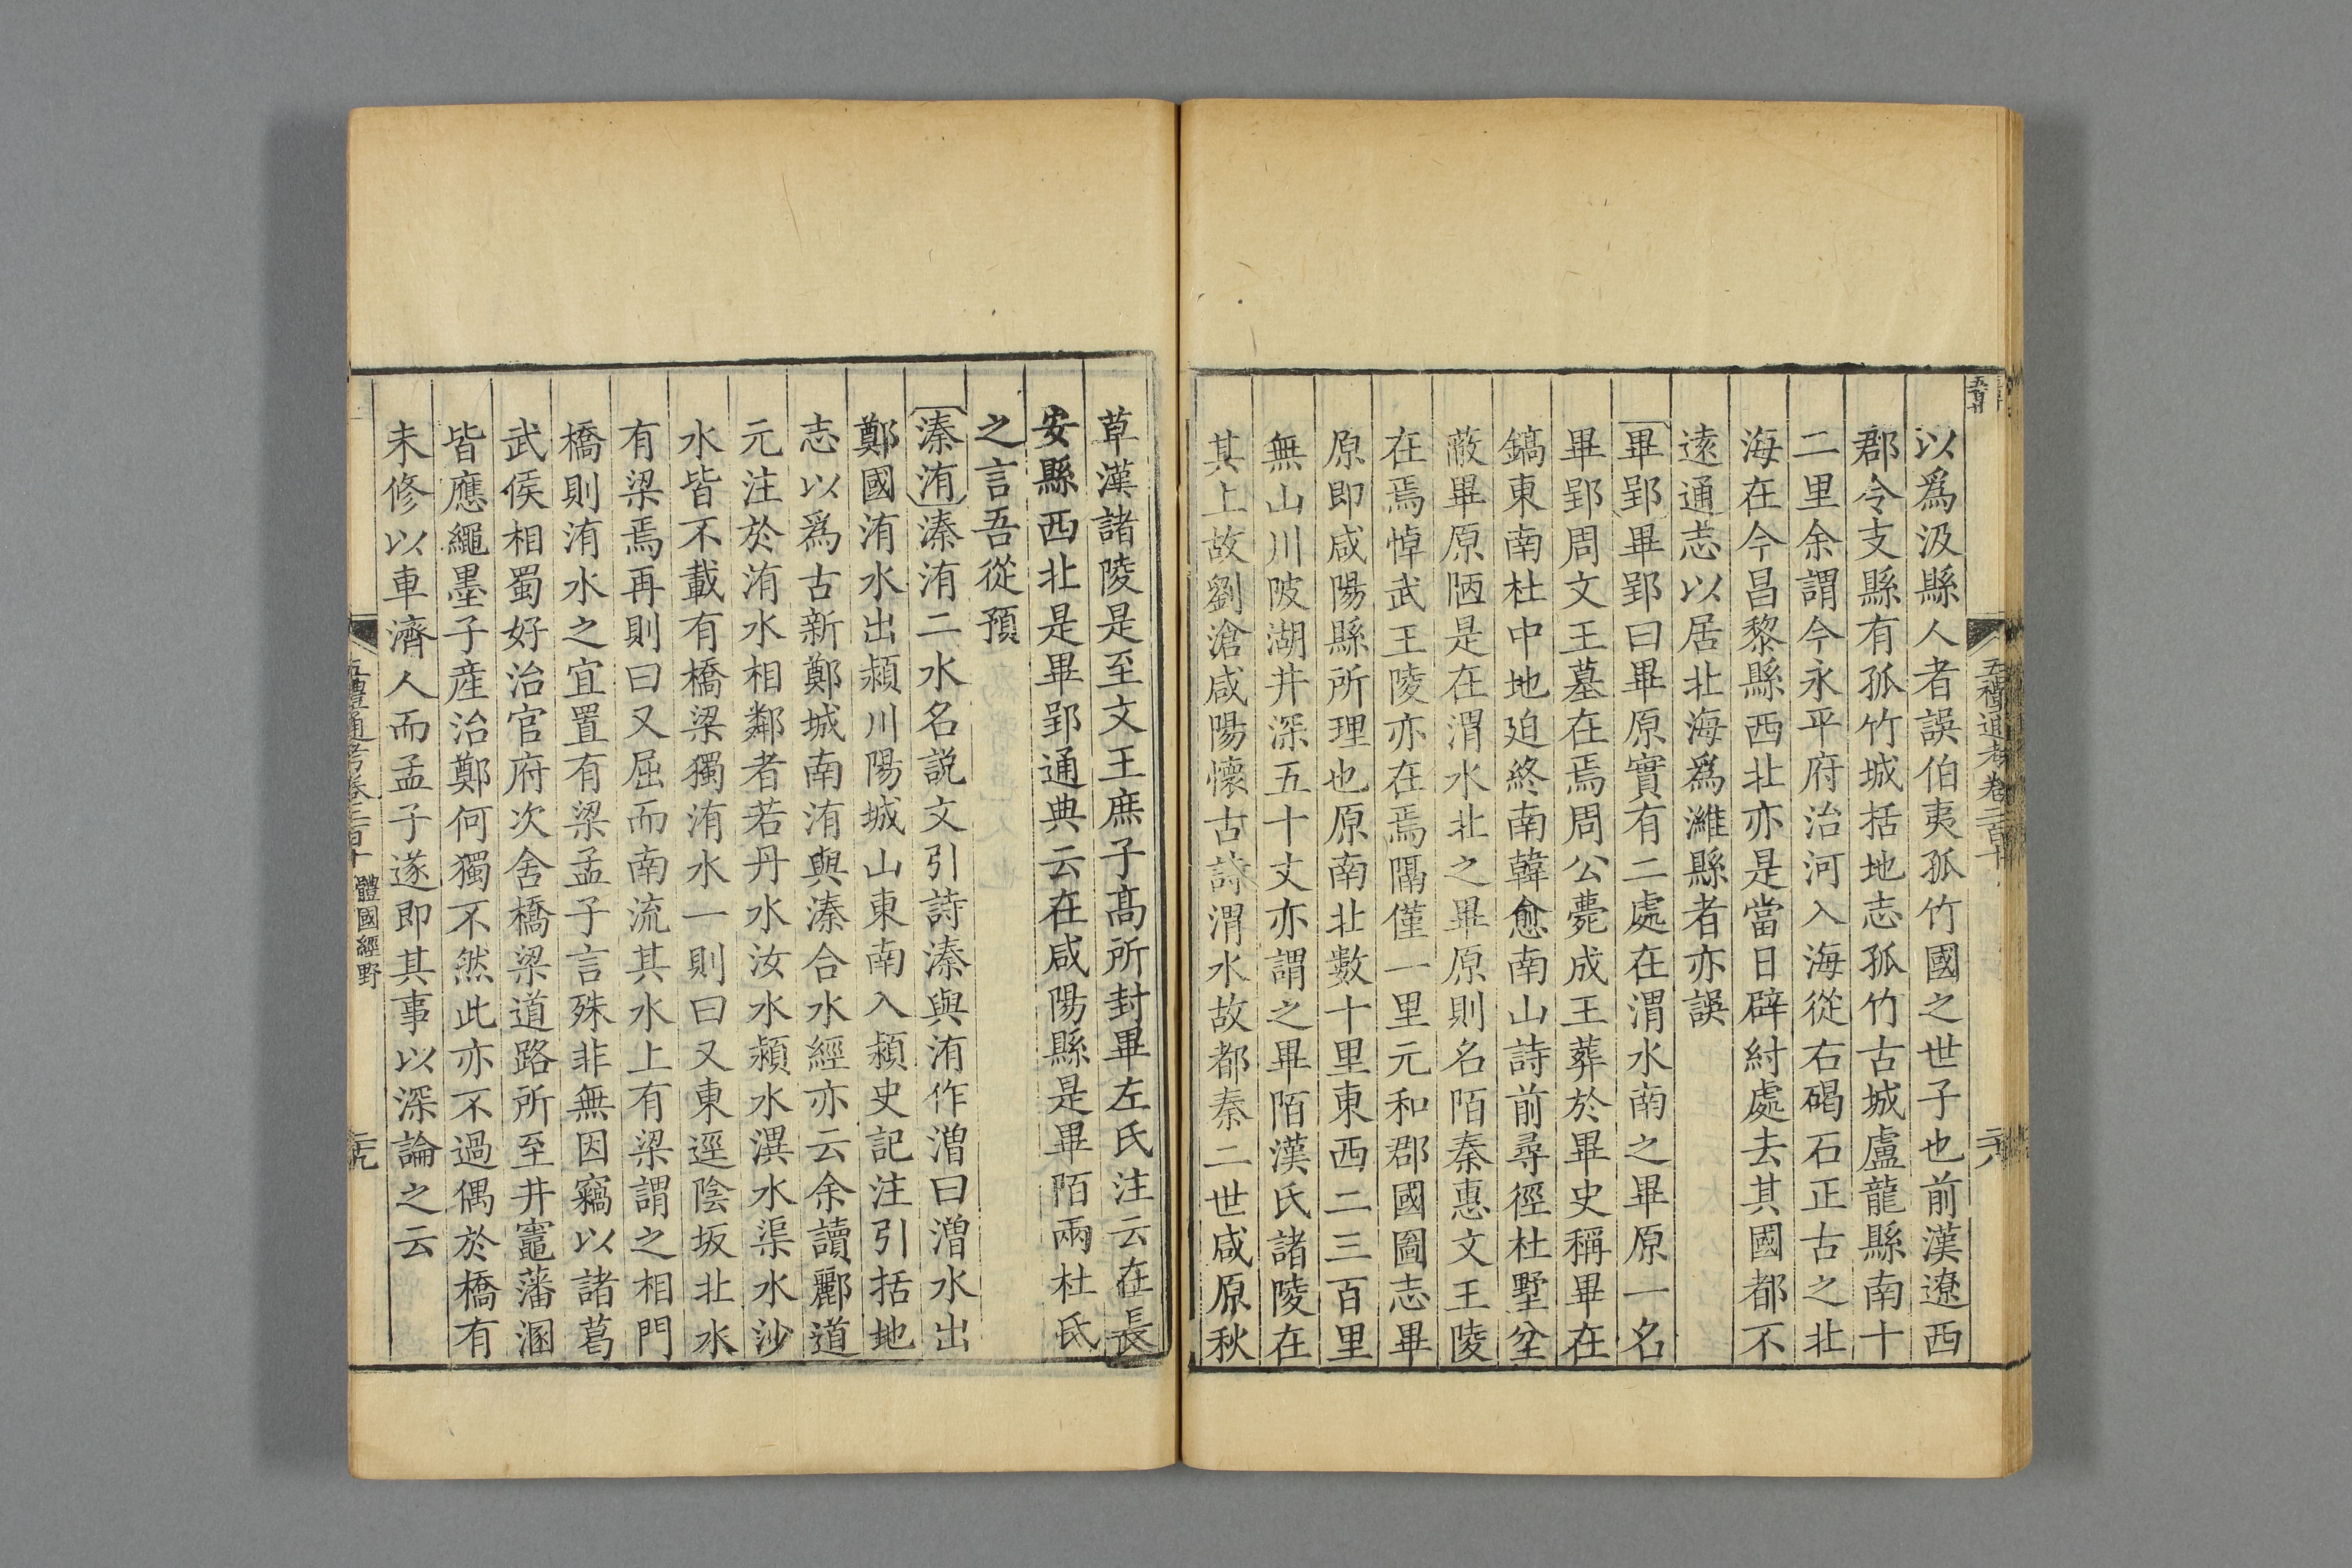 五禮通考卷二百十
以爲汲縣人者誤伯夷孤竹國之世子也前漢遼西
郡令支縣有孤竹城括地志孤竹古城盧龍縣南十
二里余謂今永平府治河入海從右碣石正古之北
海在今昌黎縣西北亦是當日辟紂處去其國都不
遠通志以居北海爲濰縣者亦誤
畢郢畢郢曰畢原實有二處在渭水南之畢原一名
畢郢周文王墓在焉周公薨成王葬於畢史稱畢在
鎬東南杜中地迫終南韓愈南山詩前尋徑杜墅坌
蔽畢原陋是在渭水北之畢原則名陌秦惠文王陵
在焉悼武王陵亦在焉隅僅一里元和郡國圖志畢
原即咸陽縣所理也原南北數十里東西二三百里
無山川陂湖井深五十丈亦謂之畢陌漢氏諸陵在
其上故劉滄咸陽懷古詩渭水故都秦二世咸原秋
草漢諸陵是至文王庶子高所封畢左氏注云在長
安縣西北是畢郢通典云在咸陽縣是畢陌兩杜氏
之言吾從預
溱洧溱洧二水名説文引詩溱與洧作潧曰潧水出
鄭國洧水出潁川陽城山東南入潁史記注引括地
志以爲古新鄭城南洧與溱合水經亦云余讀酈道
元注於洧水相鄰者若丹水汝水潁水潩水渠水沙
水皆不載有橋梁獨洧水一則曰又東逕陰坂北水
有梁焉再則曰又屈而南流其水上有梁謂之相門
橋則洧水之宜置有梁孟子言殊非無因竊以諸葛
武侯相蜀好治官府次舍橋梁道路所至井竈藩溷
皆應繩墨子産治鄭何獨不然此亦不過偶於橋有
未修以車濟人而孟子遂即其事以深論之云
五禮通考卷二百十 體國經野